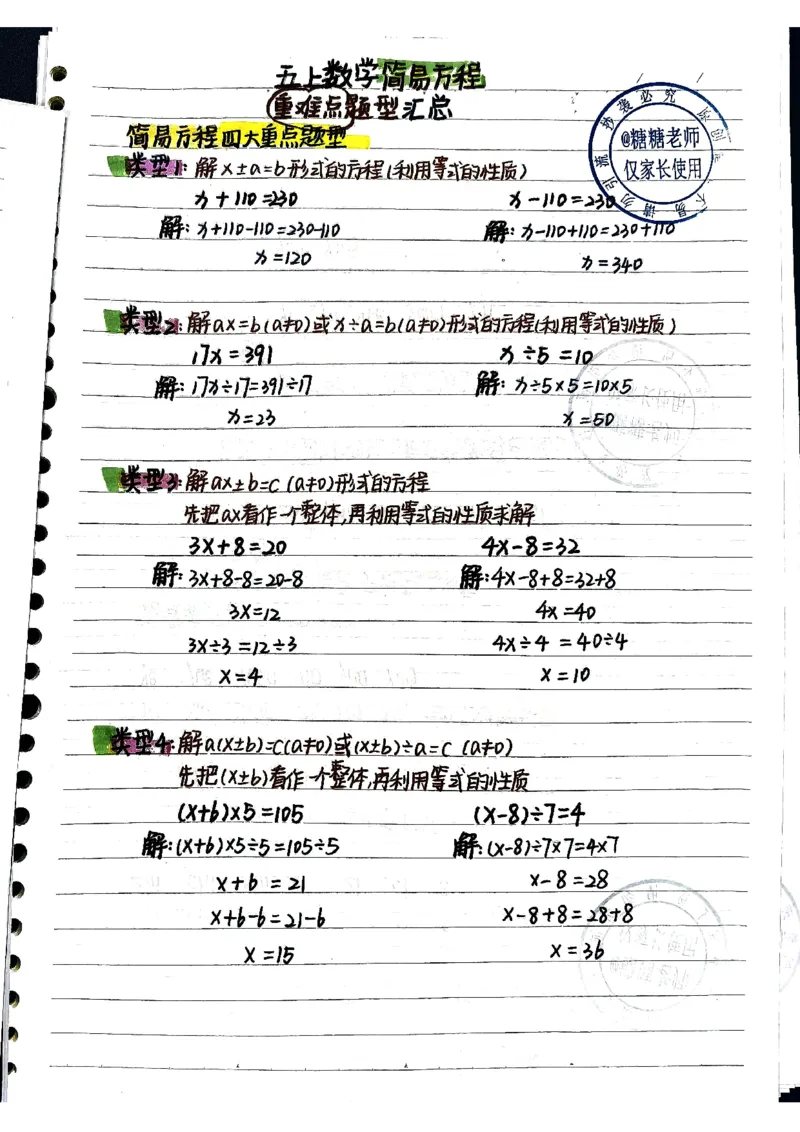 五上数学简易方程
重难点题型汇总
简易方程四大重点题型
抄袭必究 原创不易 请勿引流
@糖糖老师
仅家长使用
类型1:解x±a=b形式的方程(利用等式的性质)
x+110=230 x-110=230
解:x+110-110=230-110 解:x-110+110=230+110
x=120 x=340
类型2:解ax=b(a≠0)或x÷a=b(a≠0)形式的方程(利用等式的性质)
17x=391 x÷5=10
解:17x÷17=391÷17 解:x÷5×5=10×5
x=23 x=50
类型3:解ax±b=c(a≠0)形式的方程
先把ax看作一个整体,再利用等式的性质求解
3x+8=20 4x-8=32
解:3x+8-8=20-8 解:4x-8+8=32+8
3x=12 4x=40
3x÷3=12÷3 4x÷4=40÷4
x=4 x=10
类型4:解a(x±b)=c(a≠0)或(x±b)÷a=c(a≠0)
先把(x±b)看作一个整体,再利用等式的性质
(x+6)×5=105 (x-8)÷7=4
解:(x+6)×5÷5=105÷5 解:(x-8)÷7×7=4×7
x+6=21 x-8=28
x+6-6=21-6 x-8+8=28+8
x=15 x=36